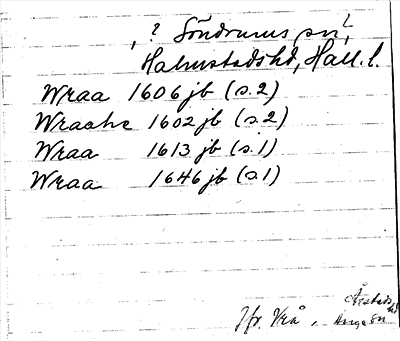 , ? Söndrums sn ?,
Halmstads hd, Hall. l.
Wraa 1606 jb (s. 2)
Wraahe 1602 jb (s. 2)
Wraa 1613 jb (s. 1)
Wraa 1646 jb (s 1)
Årstads hd
Jfr. Vrå, Asige sn